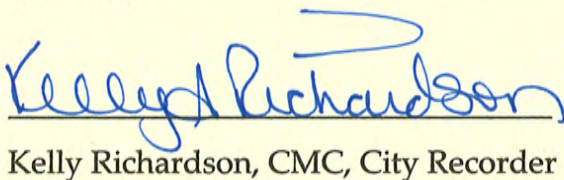 Kelly Richardson
Kelly Richardson, CMC, City Recorder